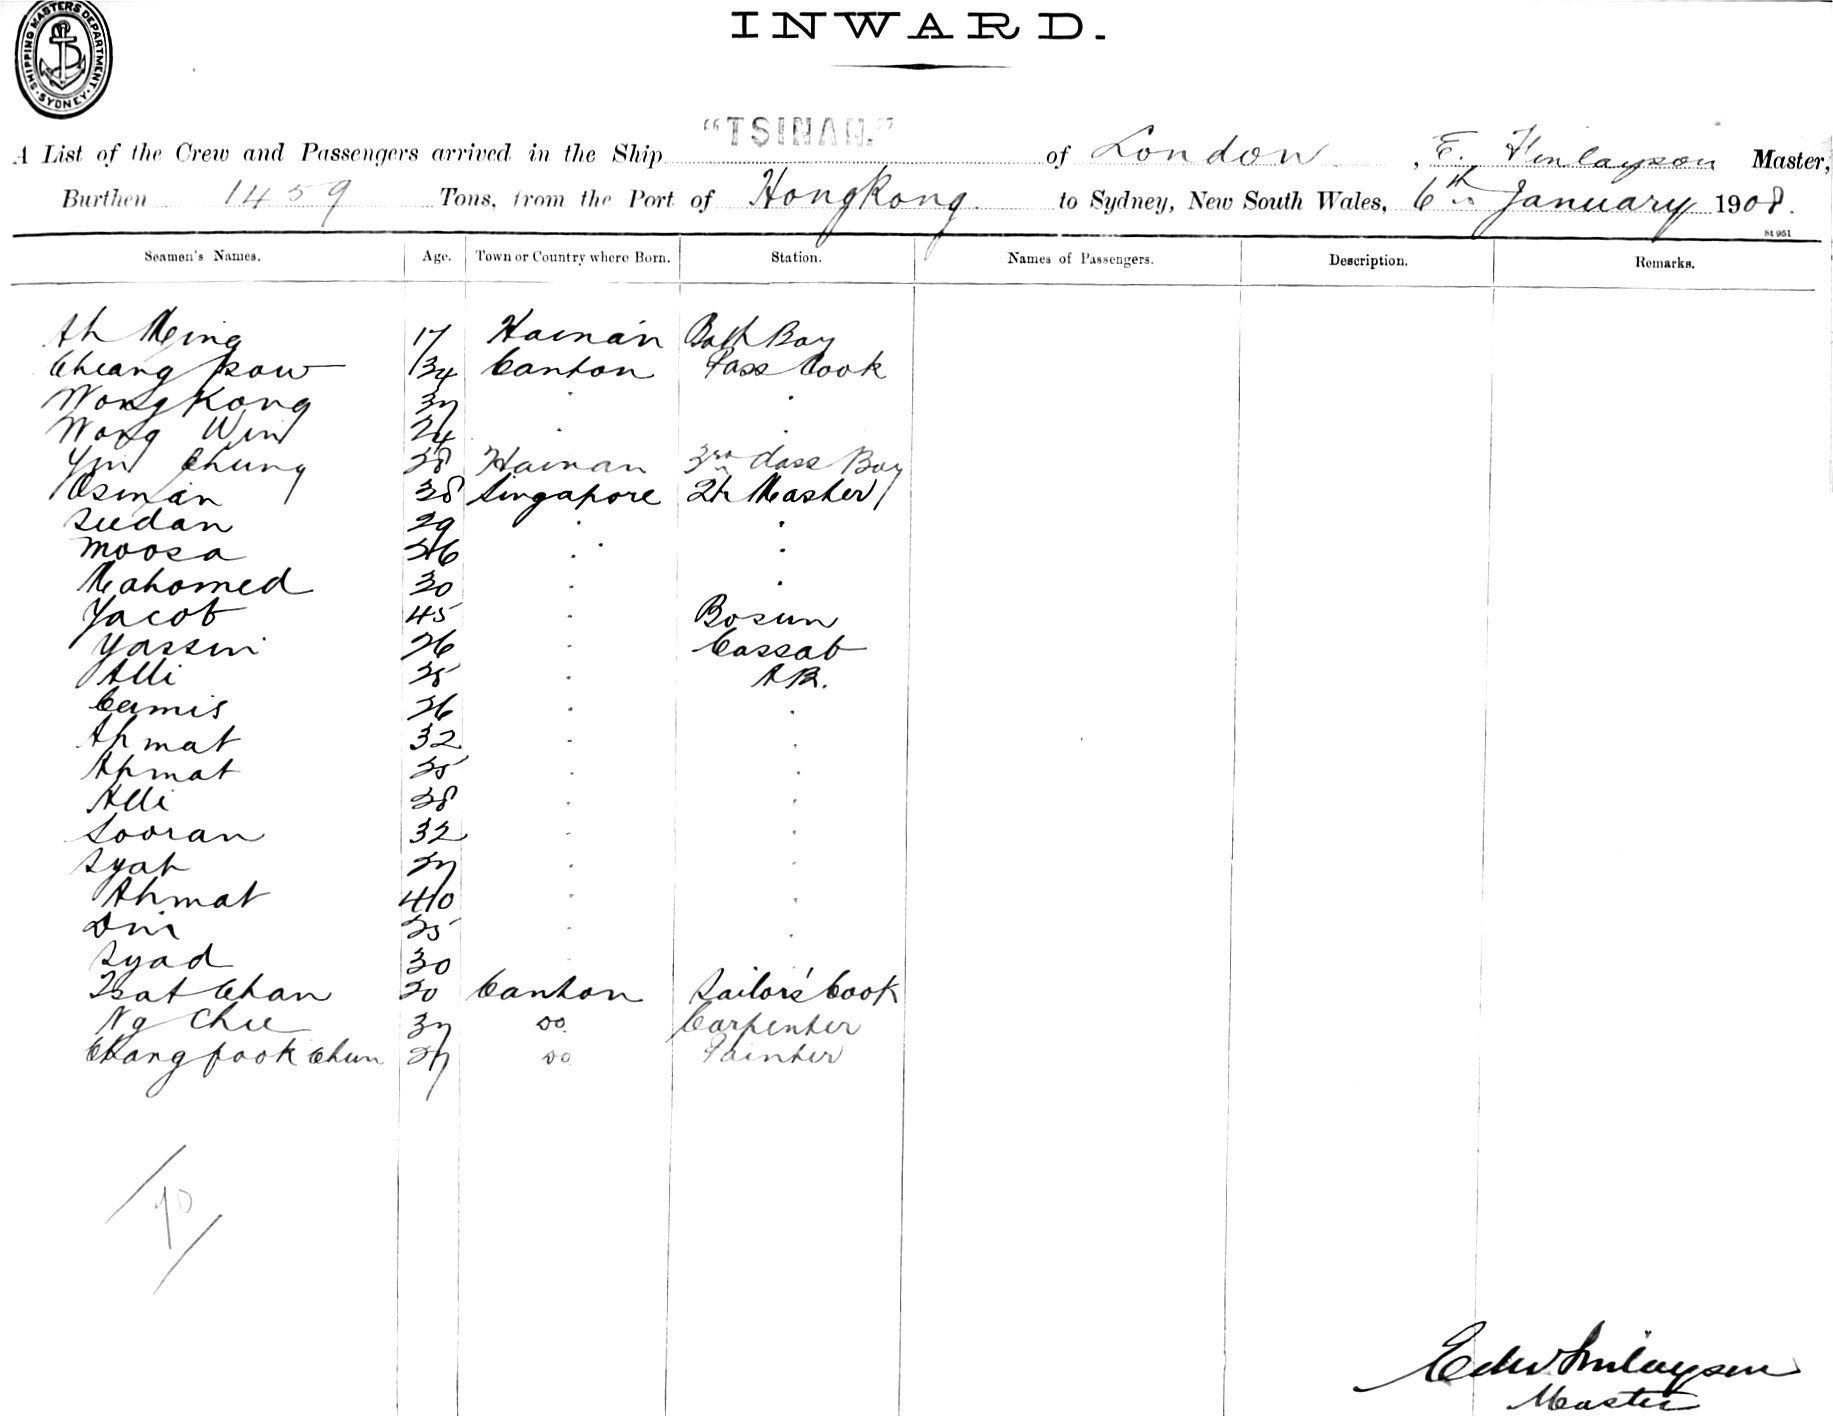 SHIPPING MASTERS DEPARTMENT. SYDNEY.
INWARD.
A List of the Crew and Passengers arrived in the Ship "TSINAN." of London, E. Finlayson Master,
Burthen 1459 Tons, from the Port of HongKong to Sydney, New South Wales, 6th January 1908.
St 951
Seamen's Names. Age. Town or Country where Born. Station. Names of Passengers. Description. Remarks.
Ah Ming 17 Hainan Bath Boy
Cheang 34 Canton Pass Cook
Wong Kong 37 " "
Wong Win 24 " "
Yin Chung 28 Hainan 3rd Class Boy
Osman 38 Singapore Qtr Master
Sudan 29 " "
Moosa 26 " "
Mahomed 30 " "
Yacob 45 " Bosun
Yassin 26 " Cassab
Alli 25 " A.B.
Camis 26 " "
Ahmat 32 " "
Ahmat 25 " "
Alli 28 " "
Sooran 32 " "
Syah 27 " "
Ahmat 40 " "
Din 25 " "
Syad 30
Tsat Chan 20 Canton Sailors' Cook
Ng Chee 37 do. Carpenter
Chang fook Chun 27 do Painter
70
Edw Finlayson
Master